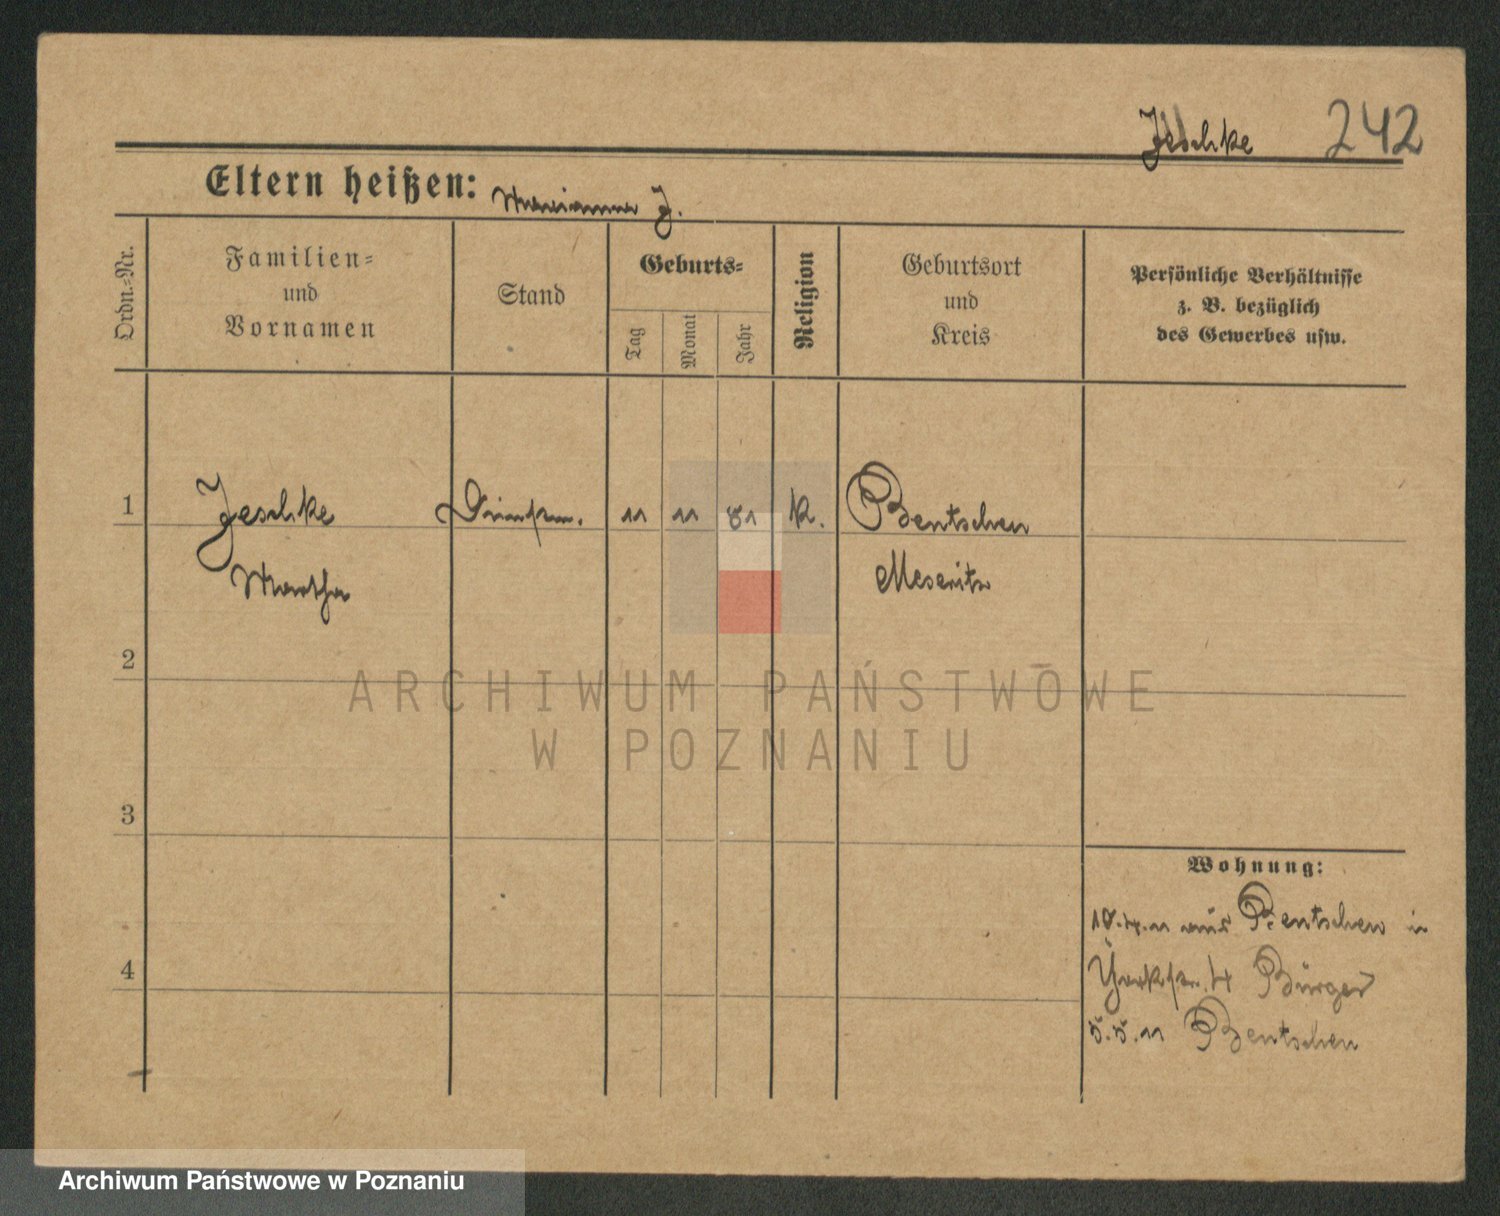 Jeschke 242
Eltern heißen: Marianna J.
Ordn.-Nr.
Familien-
und
Vornamen
Stand
Geburts-
Tag
Monat
Jahr
Religion
Geburtsort
und
Kreis
Persönliche Verhältnisse
z. B. bezüglich
des Gewerbes usw.
1 Jeschke 11 11 81 k. Bentschen
Martha Meseritz
2
ARCHIWUM PAŃSTWOWE
W POZNANIU
3
Wohnung:
10.4.11 aus Bentschen in
4
Yorkstr. 4 Bürger
5.5.11 Bentschen
Archiwum Państwowe w Poznaniu